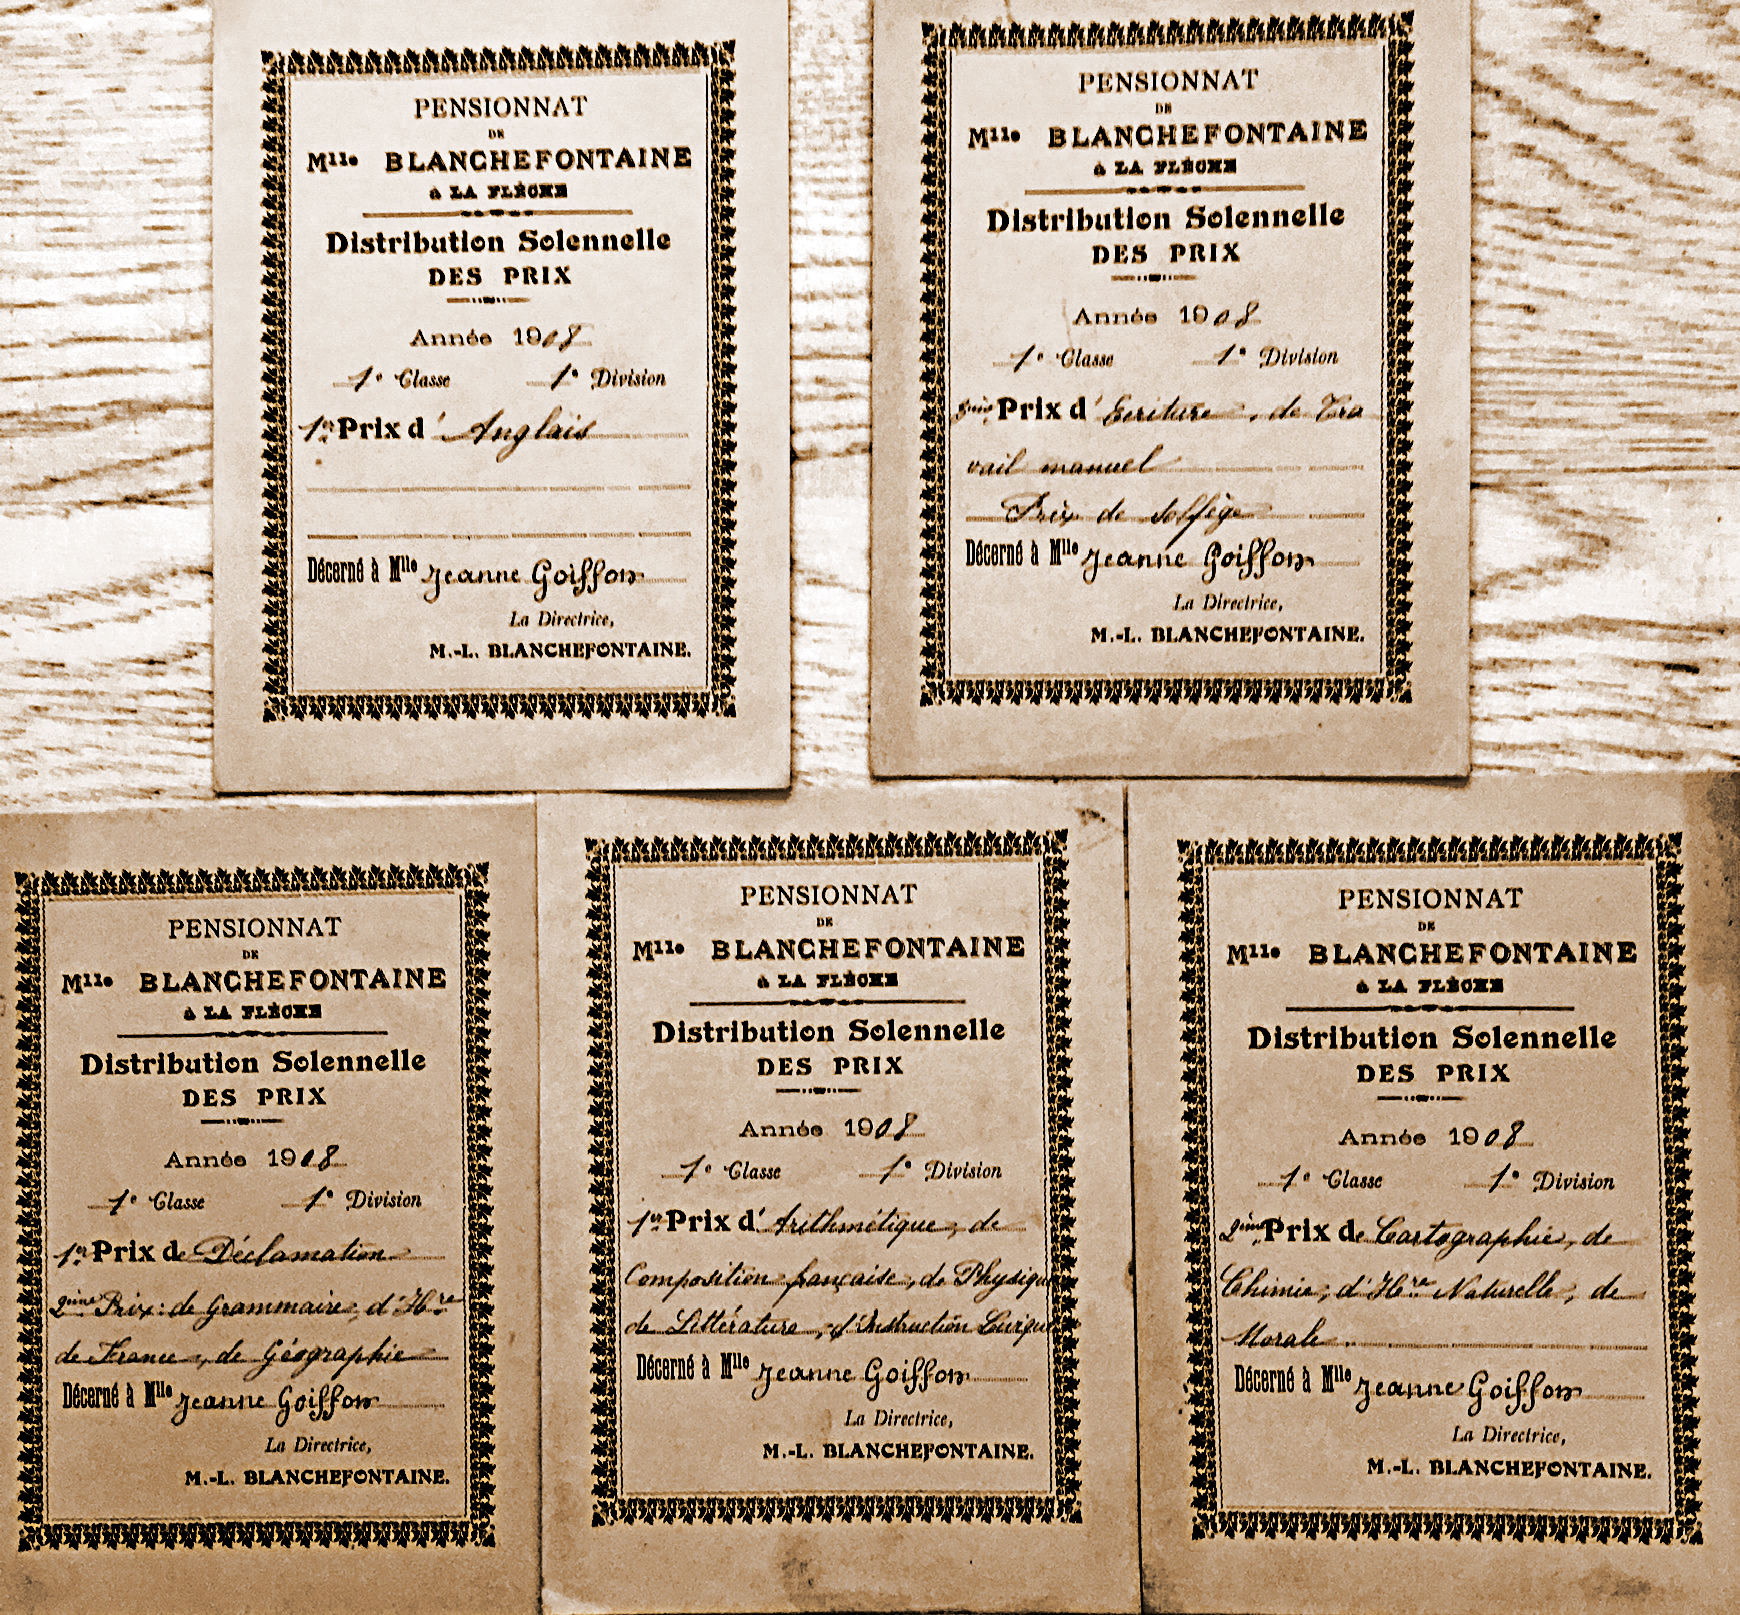 PENSIONNAT
DE
Mlle BLANCHEFONTAINE
à LA FLÈCHE
Distribution Solennelle
DES PRIX
Année 1908
1e Classe 1e Division
1er Prix d'Anglais
Décerné à Mlle Jeanne Goiffon
La Directrice,
M.-L. BLANCHEFONTAINE.
PENSIONNAT
DE
Mlle BLANCHEFONTAINE
à LA FLÈCHE
Distribution Solennelle
DES PRIX
Année 1908
1e Classe 1e Division
Prix d'Ecriture, de Tra
vail manuel
Prix de Solfège
Décerné à Mlle Jeanne Goiffon
La Directrice,
M.-L. BLANCHEFONTAINE.
PENSIONNAT
DE
Mlle BLANCHEFONTAINE
à LA FLÈCHE
Distribution Solennelle
DES PRIX
Année 1908
1e Classe 1e Division
1er Prix de Déclamation
2ème Prix: de Grammaire, d'Hre
de France, de Géographie
Décerné à Mlle Jeanne Goiffon
La Directrice,
M.-L. BLANCHEFONTAINE.
PENSIONNAT
DE
Mlle BLANCHEFONTAINE
à LA FLÈCHE
Distribution Solennelle
DES PRIX
Année 1908
1e Classe 1e Division
1er Prix d'Arithmétique, de
Composition française, de Physique
de Littérature, d'Instruction Civique
Décerné à Mlle Jeanne Goiffon
La Directrice,
M.-L. BLANCHEFONTAINE.
PENSIONNAT
DE
Mlle BLANCHEFONTAINE
à LA FLÈCHE
Distribution Solennelle
DES PRIX
Année 1908
1e Classe 1e Division
2ème Prix de Cartographie, de
Chimie, d'Hre Naturelle, de
Morale.
Décerné à Mlle Jeanne Goiffon
La Directrice,
M.-L. BLANCHEFONTAINE.